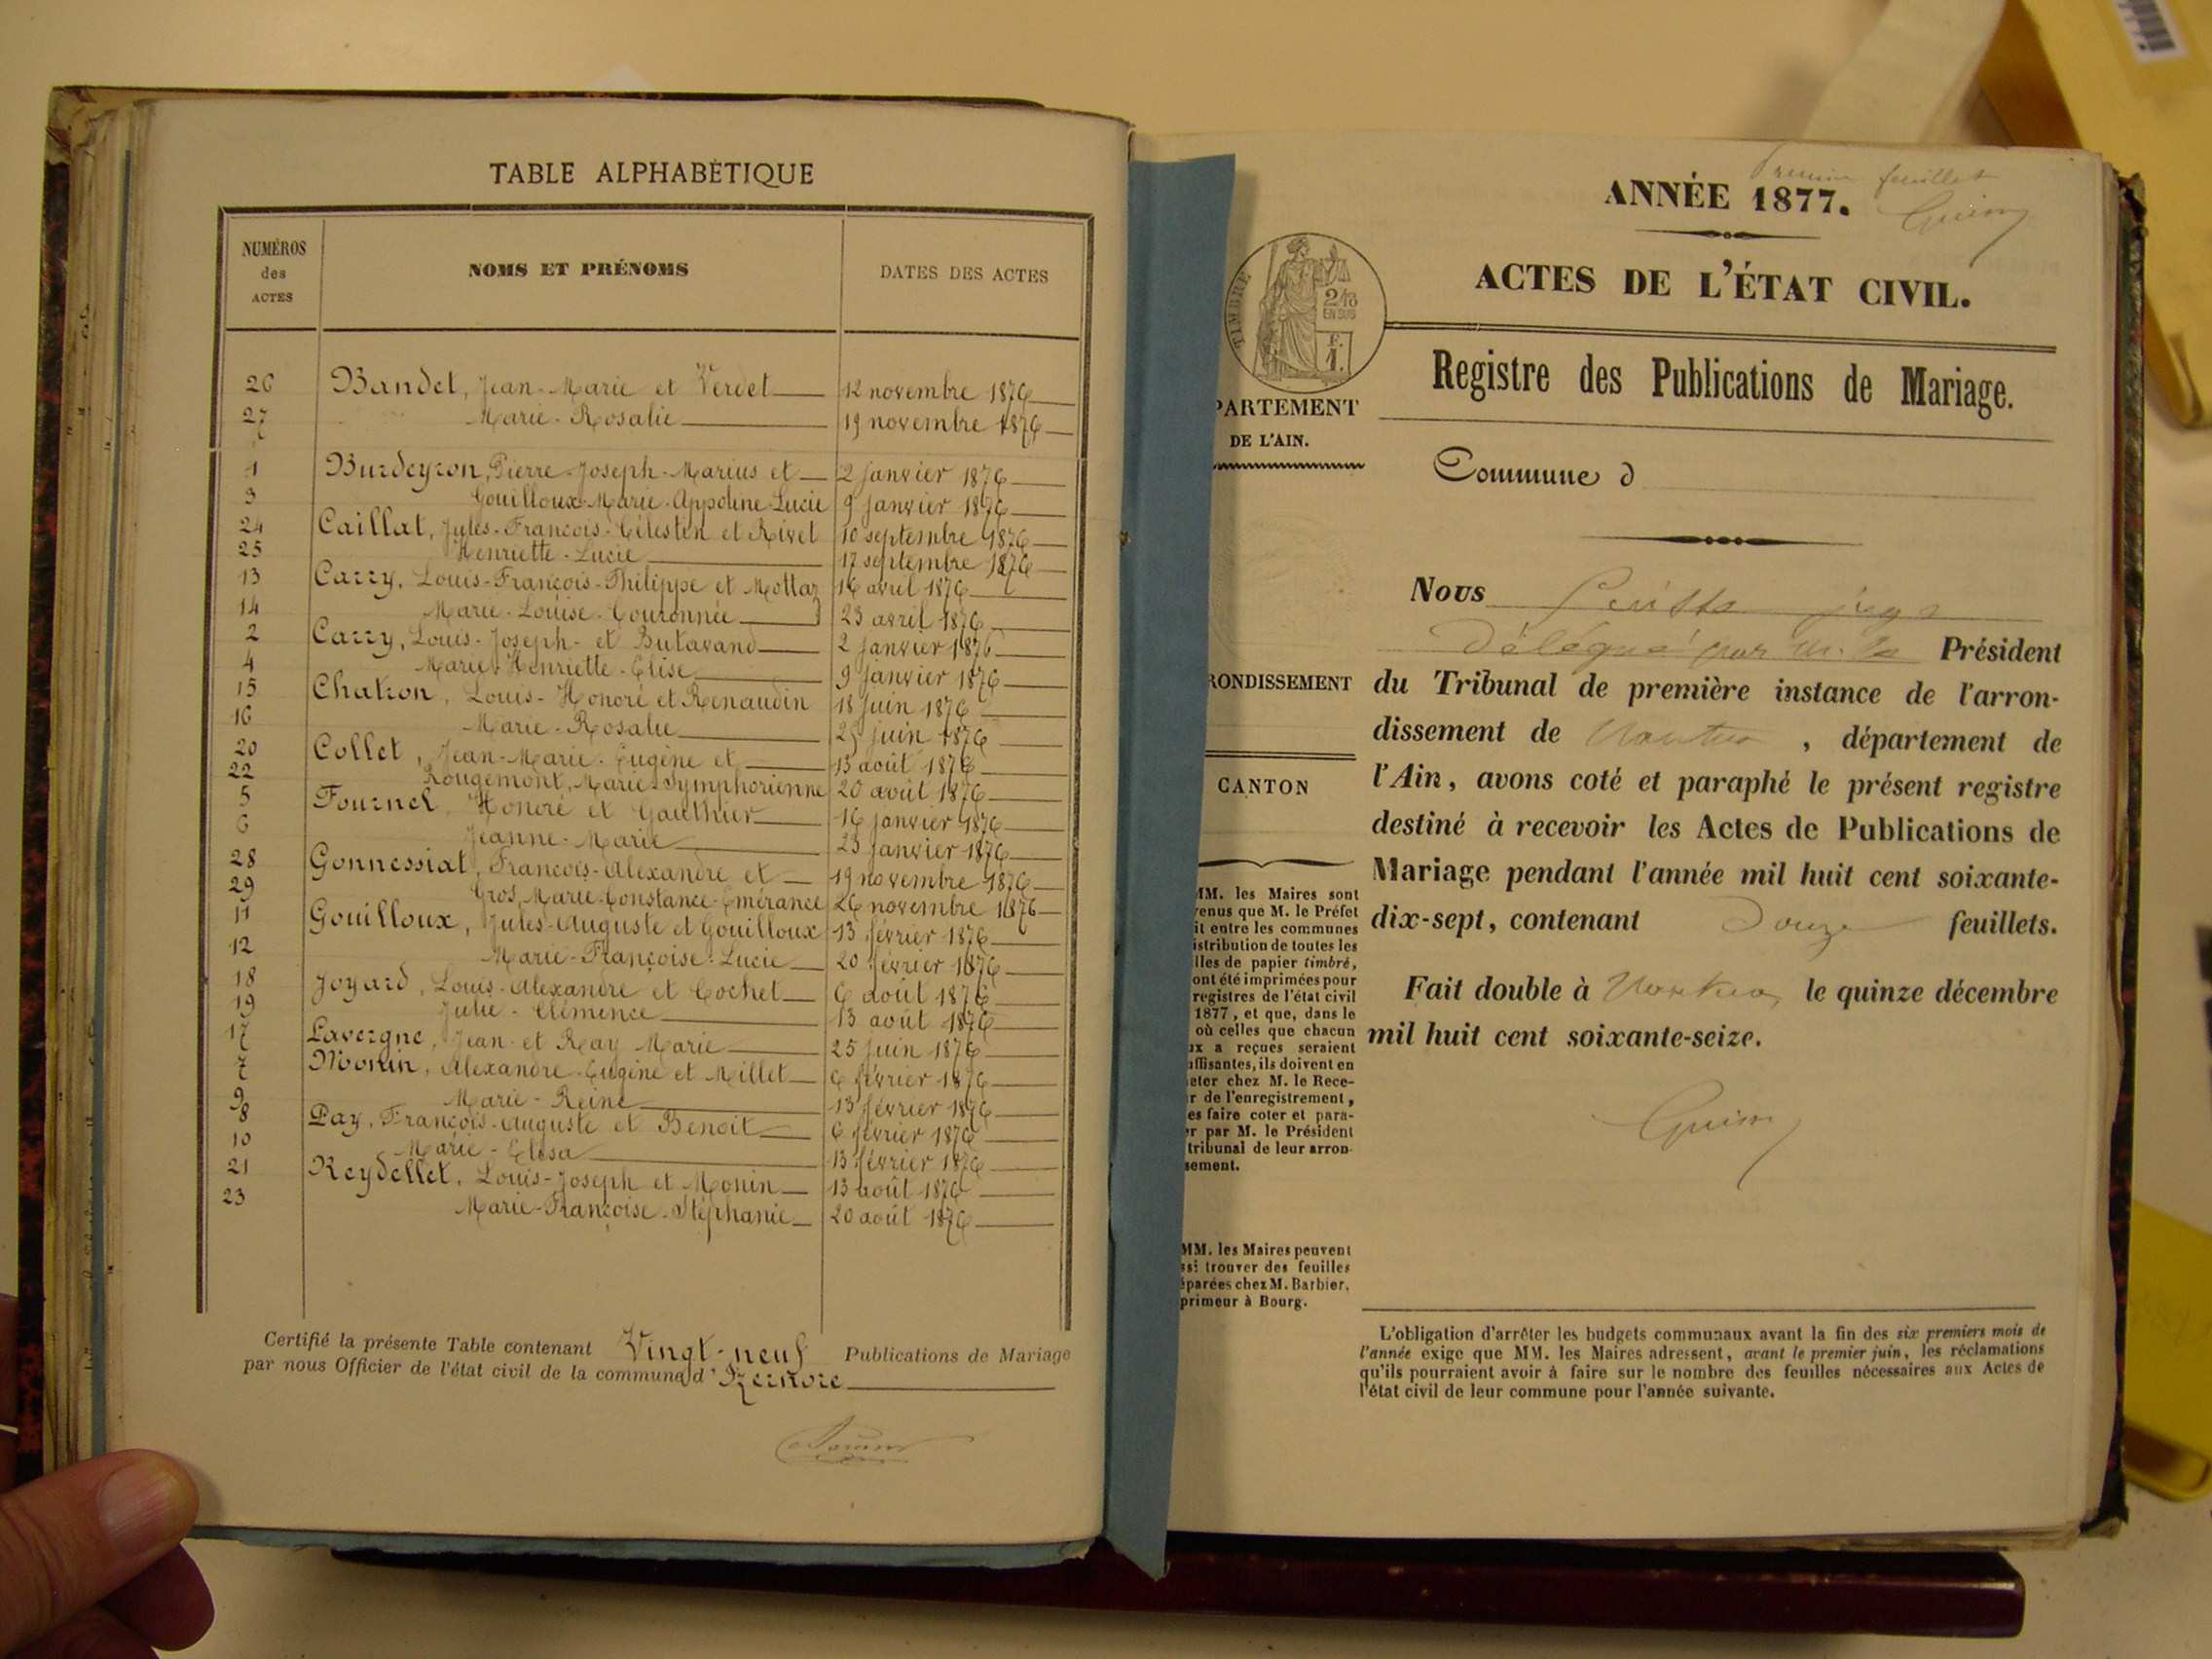 TABLE ALPHABÉTIQUE
NUMÉROS des ACTES NOMS ET PRÉNOMS DATES DES ACTES
26 Bandet, Jean-Marie et Verdet 12 novembre 1876
27 Marie-Rosalie 19 novembre 1876
1 Burdeyron, Pierre-Joseph-Marius et 2 janvier 1876
3 Gouilloux Marie-Appoline-Lucie 9 janvier 1876
24 Caillat, Jules-François-Célestin et Rivet 10 septembre 1876
25 Henriette-Lucie 17 septembre 1876
13 Carry, Louis-François-Philippe et Mottaz 16 avril 1876
14 Marie-Louise-Couronnée 23 avril 1876
2 Carry, Louis-Joseph- et Butavand 2 janvier 1876
4 Marie-Henriette-Elise 9 janvier 1876
15 Chatron, Louis-Honoré et Renaudin 18 juin 1876
16 Marie-Rosalie 25 juin 1876
20 Collet, Jean-Marie-Eugène et 13 août 1876
22 Rougemont, Marie-Symphorienne 20 août 1876
5 Fournel, Honoré et Gauthier 16 janvier 1876
6 Jeanne-Marie 23 janvier 1876
28 Gonnessiat, François-Alexandre et 19 novembre 1876
29 Gros, Marie-Constance-Emérance 26 novembre 1876
11 Gouilloux, Jules-Auguste et Gouilloux 13 février 1876
12 Marie-Françoise-Lucie 20 février 1876
18 Joyard, Louis-Alexandre et Cochet 6 août 1876
19 Julie-Clémence 13 août 1876
17 Lavergne, Jean et Ray Marie 25 juin 1876
7 Monin, Alexandre-Eugène et Millet 6 février 1876
9 Marie-Reine 13 février 1876
8 Pay, François-Auguste et Benoit 6 février 1876
10 Marie-Elisa 13 février 1876
21 Reydellet, Louis-Joseph et Monin 13 août 1876
23 Marie-Françoise-Stéphanie 20 août 1876
Certifié la présente Table contenant Vingt-neuf Publications de Mariage
par nous Officier de l'état civil de la commune d'Izernore
Premier feuillet
ANNÉE 1877.
Guim
ACTES DE L'ÉTAT CIVIL.
TIMBRE
2/10
EN SUS
F.
1.
Registre des Publications de Mariage.
PARTEMENT
DE L'AIN.
Commune d
Nous juge
Délégué par M. le Président
RONDISSEMENT
du Tribunal de première instance de l'arron-
dissement de Nantua, département de
l'Ain, avons coté et paraphé le présent registre
CANTON
destiné à recevoir les Actes de Publications de
Mariage pendant l'année mil huit cent soixante-
dix-sept, contenant Douze feuillets.
Fait double à Nantua, le quinze décembre
mil huit cent soixante-seize.
Guim
MM. les Maires sont
enus que M. le Préfet
it entre les communes
istribution de toutes les
lles de papier timbré,
ont été imprimées pour
registres de l'état civil
1877, et que, dans le
où celles que chacun
ux a reçues seraient
uffisantes, ils doivent en
eter chez M. le Rece-
r de l'enregistrement,
es faire coter et para-
er par M. le Président
tribunal de leur arron-
sement.
MM. les Maires peuvent
ssi trouver des feuilles
éparées chez M. Barbier,
primeur à Bourg.
L'obligation d'arrêter les budgets communaux avant la fin des six premiers mois de
l'année exige que MM. les Maires adressent, avant le premier juin, les réclamations
qu'ils pourraient avoir à faire sur le nombre des feuilles nécessaires aux Actes de
l'état civil de leur commune pour l'année suivante.